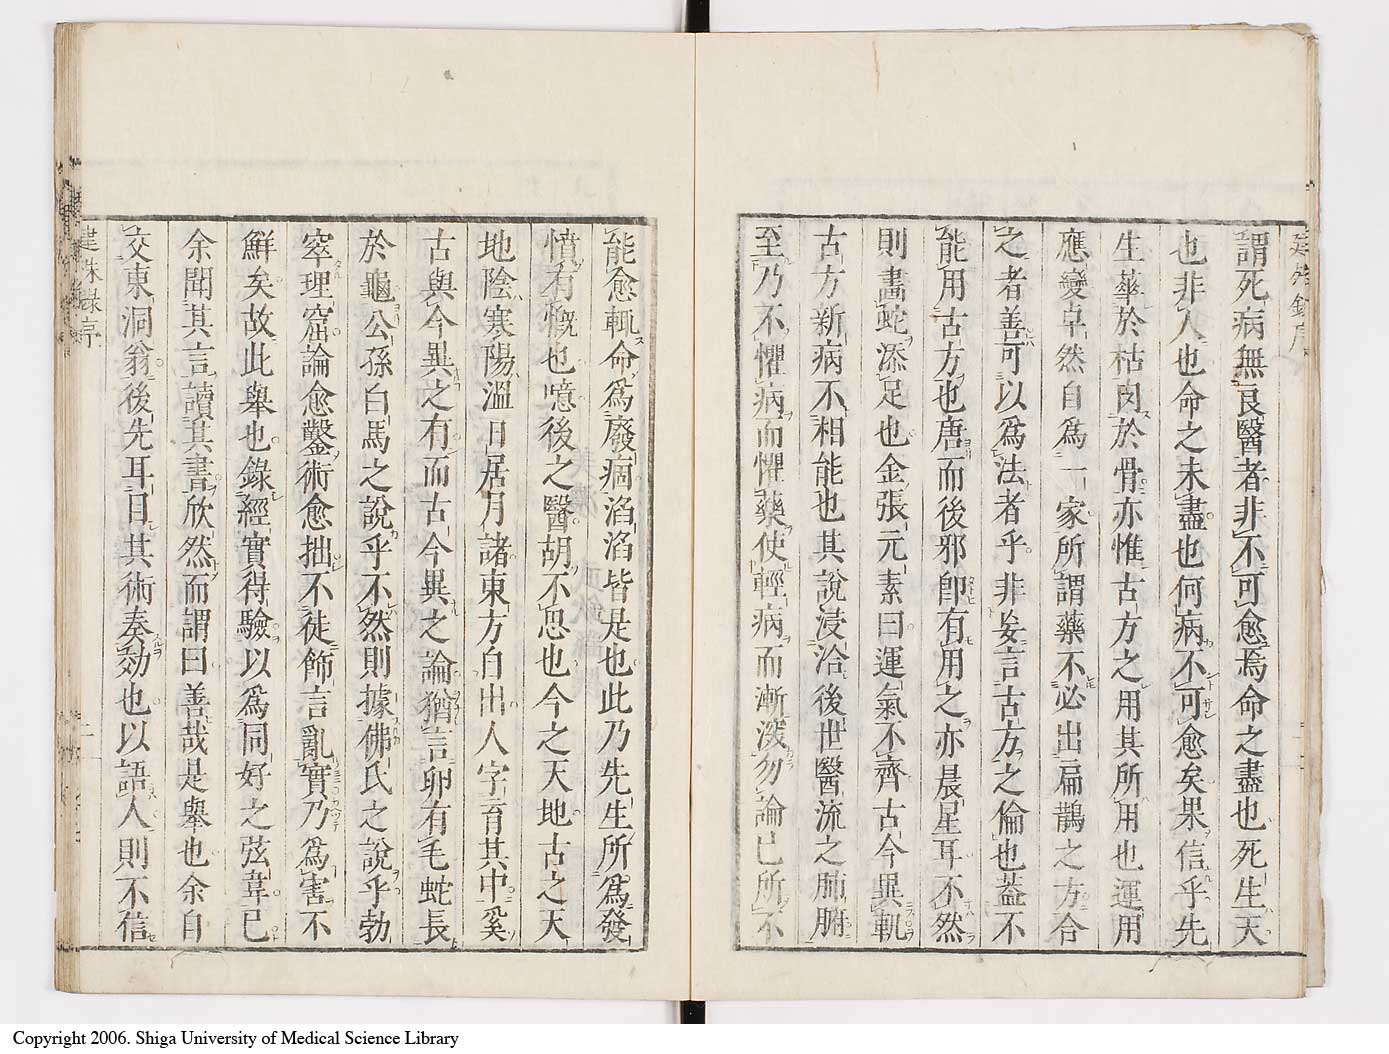 謂死病無良醫者非不可愈焉命之盡也死生天
也非人也命之未盡也何病不可愈矣果信乎先
生華於枯肉於骨亦惟古方之用其所用也運用
應變卓然自為一家所謂藥不必出扁鵲之方合
之者善可以為法者乎非妄言古方之倫也蓋不
能用古方也唐而後邪卽有用之亦晨星耳不然
則畫蛇添足也金張元素曰運氣不齊古今異軌
古方新病不相能也其說浸洽後世醫流之肺腑
至乃不懼病而懼藥使輕病而漸深勿論已所不
能愈輒命為廢痼滔滔皆是也此乃先生所為發
憤有慨也噫後之醫胡不思也今之天地古之天
地陰寒陽溫日居月諸東方自出人字育其中奚
古與今異之有而古今異之論猶言卵有毛蛇長
於龜公孫白馬之說乎不然則據佛氏之說乎勃
窣理窟論愈鑿術愈拙不徒飾言亂實乃為害不
鮮矣故此舉也錄經實得驗以為同好之弦韋已
余聞其言讀其書欣然而謂曰善哉是舉也余自
交東洞翁後先耳目其術奏効也以語人則不信
建殊錄序
二
Copyright 2006. Shiga University of Medical Science Library